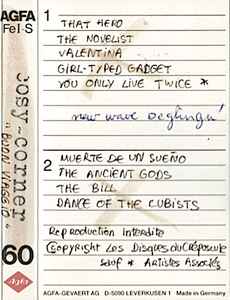 AGFA
FeI-S
1
THAT HERO
THE NOVELIST
VALENTINA
GIRL-TYPED GADGET
YOU ONLY LIVE TWICE *
new wave
2
MUERTE DE UN SUEÑO
THE ANCIENT GODS
THE BILL
DANCE OF THE CUBISTS
Reproduction interdite
Copyright Les Disques du Crépuscule
sauf * Artistes Associés
cosy-corner
"BUON VIAGGIO"
60
Agfa
AGFA-GEVAERT AG D-5090 LEVERKUSEN 1 Made in Germany